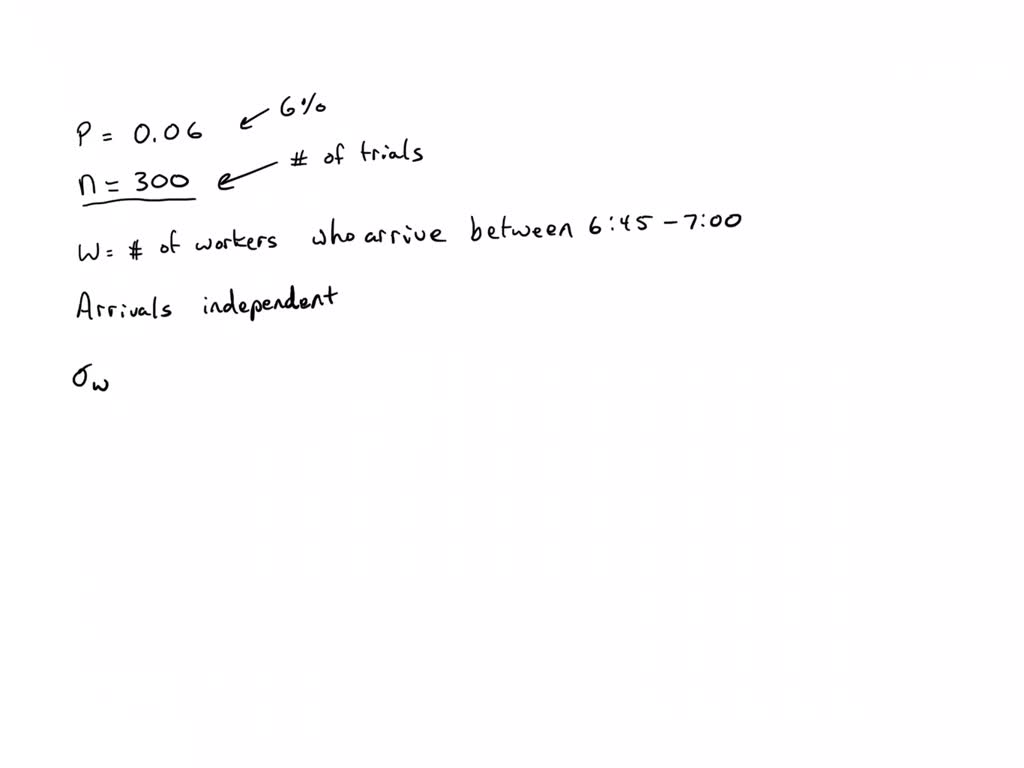 P = 0.06 ← 6%
n = 300 ← # of trials
W = # of workers who arrive between 6:45 - 7:00
Arrivals independent
σw